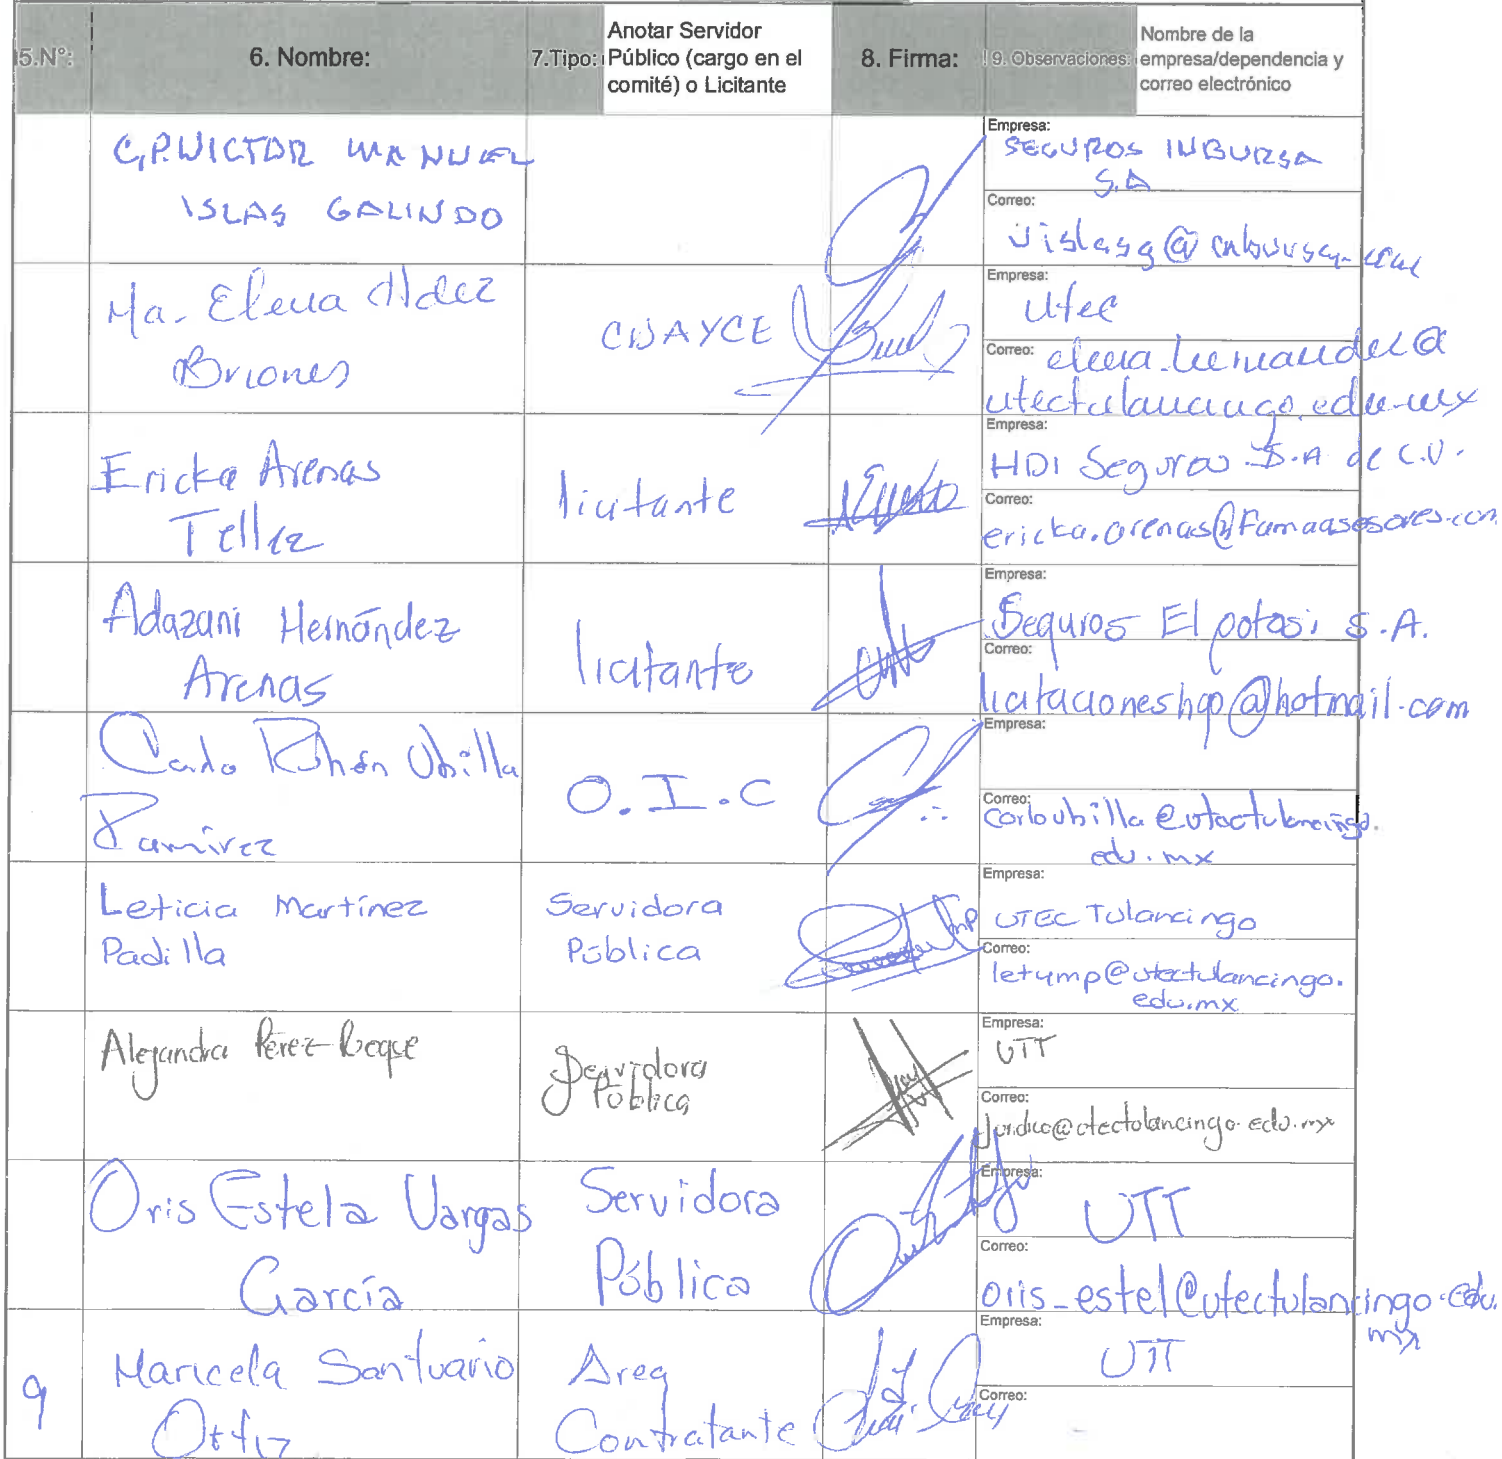 5.N°:
6. Nombre:
7.Tipo:
Anotar Servidor
Público (cargo en el
comité) o Licitante
8. Firma:
9. Observaciones:
Nombre de la
empresa/dependencia y
correo electrónico
C.P. VICTOR MANUEL
ISLAS GALINDO
Empresa:
SEGUROS INBURSA
S.A
Correo:
vislasg@inbursa.com
Ma. Elena Hdez
Briones
CUAYCE
Empresa:
Utec
Correo: elena.hernandez@
utectulancingo.edu.mx
Ericka Arenas
Tellez
licitante
Empresa:
HDI Seguros S.A de C.V.
Correo:
ericka.arenas@Famaasesores.com
Adazani Hernández
Arenas
licitante
Empresa:
Seguros El potosi S.A.
Correo:
licitacioneshgo@hotmail.com
Carlo Rhón Ubilla
Ramírez
O.I.C
Empresa:
Correo:
carloubilla@utectulancingo.
edu.mx
Leticia Martínez
Padilla
Servidora
Pública
Empresa:
UTEC Tulancingo
Correo:
letymp@utectulancingo.
edu.mx
Alejandra Pérez
Servidora
Pública
Empresa:
UTT
Correo:
juridico@utectulancingo.edu.mx
Oris Estela Vargas
García
Servidora
Pública
Empresa:
UTT
Correo:
oris_estel@utectulancingo.edu.
mx
9
Maricela Santuario
Ortiz
Area
Contratante
Empresa:
UTT
Correo: